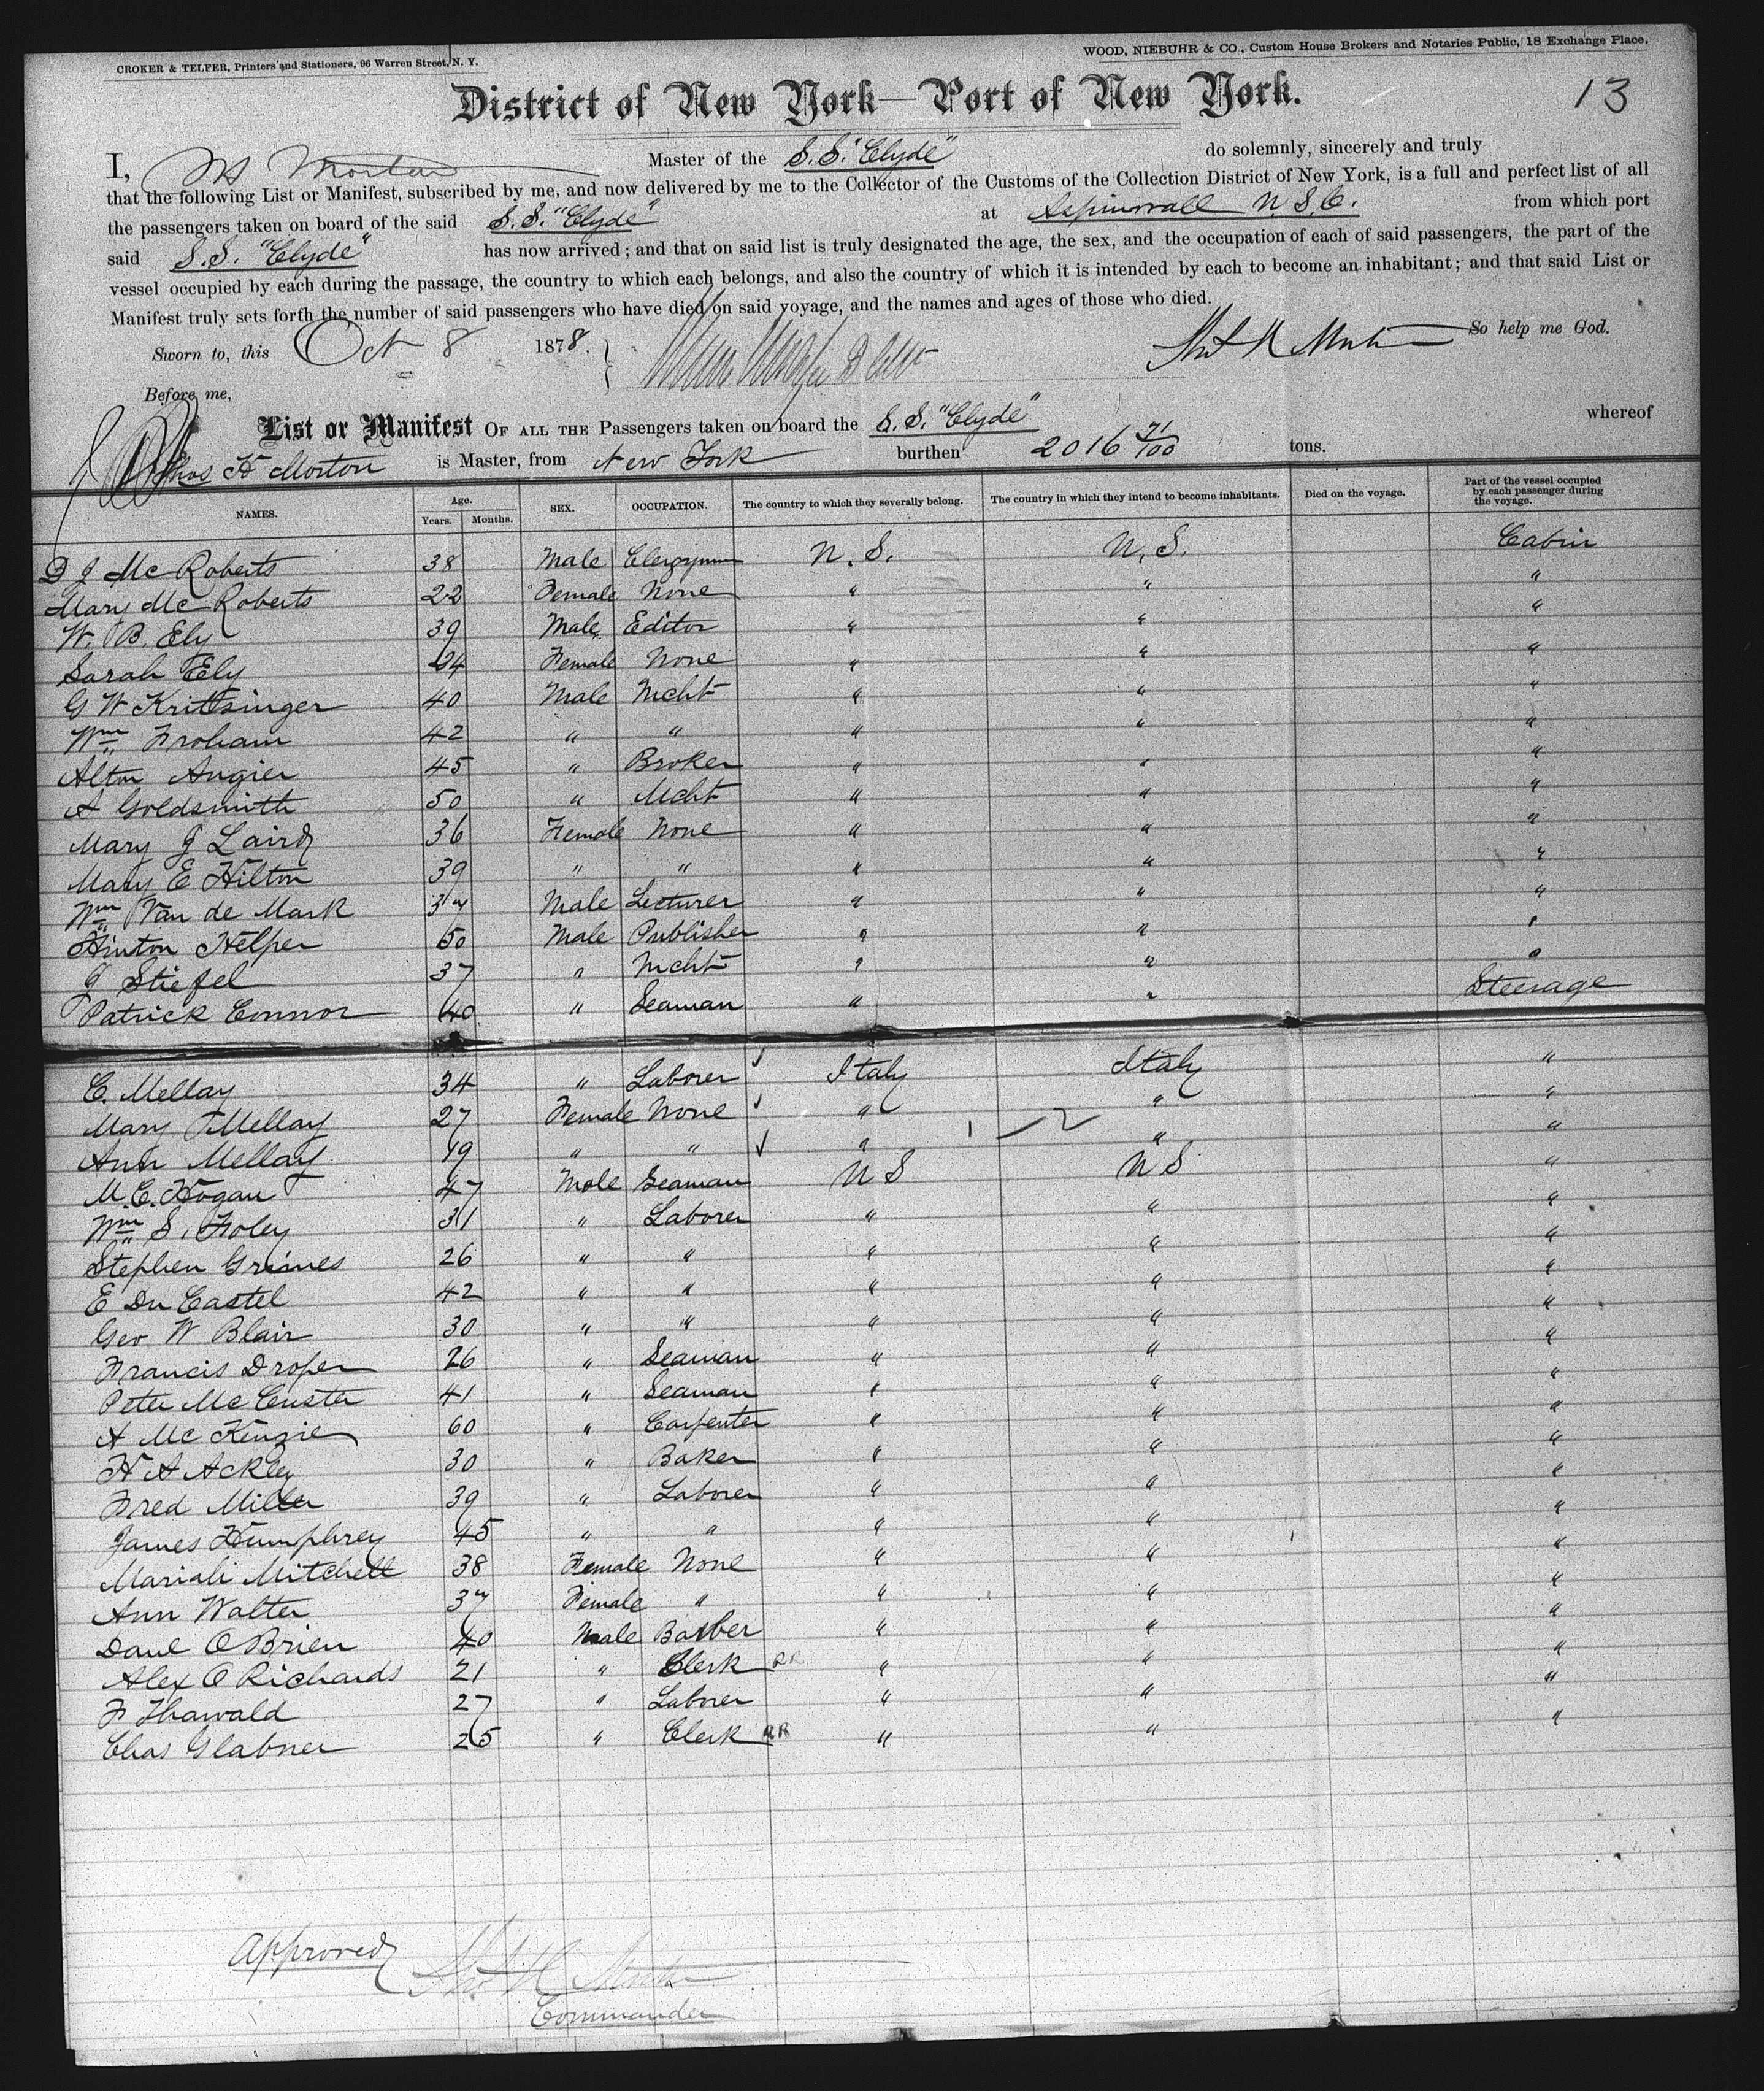 CROKER & TELFER, Printers and Stationers, 96 Warren Street, N. Y.
WOOD, NIEBUHR & CO., Custom House Brokers and Notaries Public, 18 Exchange Place.
District of New York—Port of New York.
13
I, Morton Master of the S.S. "Clyde" do solemnly, sincerely and truly
that the following List or Manifest, subscribed by me, and now delivered by me to the Collector of the Customs of the Collection District of New York, is a full and perfect list of all
the passengers taken on board of the said S.S. "Clyde" at Aspinwall U.S.C. from which port
said S.S. "Clyde" has now arrived; and that on said list is truly designated the age, the sex, and the occupation of each of said passengers, the part of the
vessel occupied by each during the passage, the country to which each belongs, and also the country of which it is intended by each to become an inhabitant; and that said List or
Manifest truly sets forth the number of said passengers who have died on said voyage, and the names and ages of those who died.
So help me God.
Sworn to, this Oct 8 1878.
Before me,
List or Manifest OF ALL THE Passengers taken on board the S.S. "Clyde" whereof
Thos H Morton is Master, from New York burthen 2016 71/100 tons.
NAMES. Age. Years. Months. SEX. OCCUPATION. The country to which they severally belong. The country in which they intend to become inhabitants. Died on the voyage. Part of the vessel occupied by each passenger during the voyage.
D J McRoberts 38 Male Clergymn U.S. U.S. Cabin
Mary McRoberts 22 Female None " " "
W. B. Ely 39 Male Editor " " "
Sarah Ely 24 Female None " " "
G W Krittsinger 40 Male Mcht " " "
Wm Froham 42 " " " " "
Alton Angier 45 " Broker " " "
A Goldsmith 50 " Mcht " " "
Mary J Laird 36 Female None " " "
Mary E Hilton 39 " " " " "
Wm Van de Mark 37 Male Lecturer " " "
Hinton Helper 50 Male Publisher " " "
J Stiefel 37 " Mcht " " "
Patrick Connor 40 " Seaman " " Steerage
C. Mellay 34 " Laborer Italy Italy "
Mary Mellay 27 Female None " " "
Ann Mellay 19 " " " " "
M. C. Hogan 47 Male Seaman U S U S "
Wm S. Foley 31 " Laborer " " "
Stephen Grimes 26 " " " " "
E Du Castel 42 " " " " "
Geo W Blair 30 " " " " "
Francis Droper 26 " Seaman " " "
Peter McCuster 41 " Seaman " " "
A McKenzie 60 " Carpenter " " "
H A Ackley 30 " Baker " " "
Fred Miller 39 " Laborer " " "
James Humphrey 45 " " " " "
Mariah Mitchell 38 Female None " " "
Ann Walter 37 Female " " " "
Danl O Brien 40 Male Barber " " "
Alex O Richards 21 " Clerk RR " " "
F Thawald 27 " Laborer " " "
Chas Glabner 25 " Clerk RR " " "
Approved
Thos H Morton
Commander